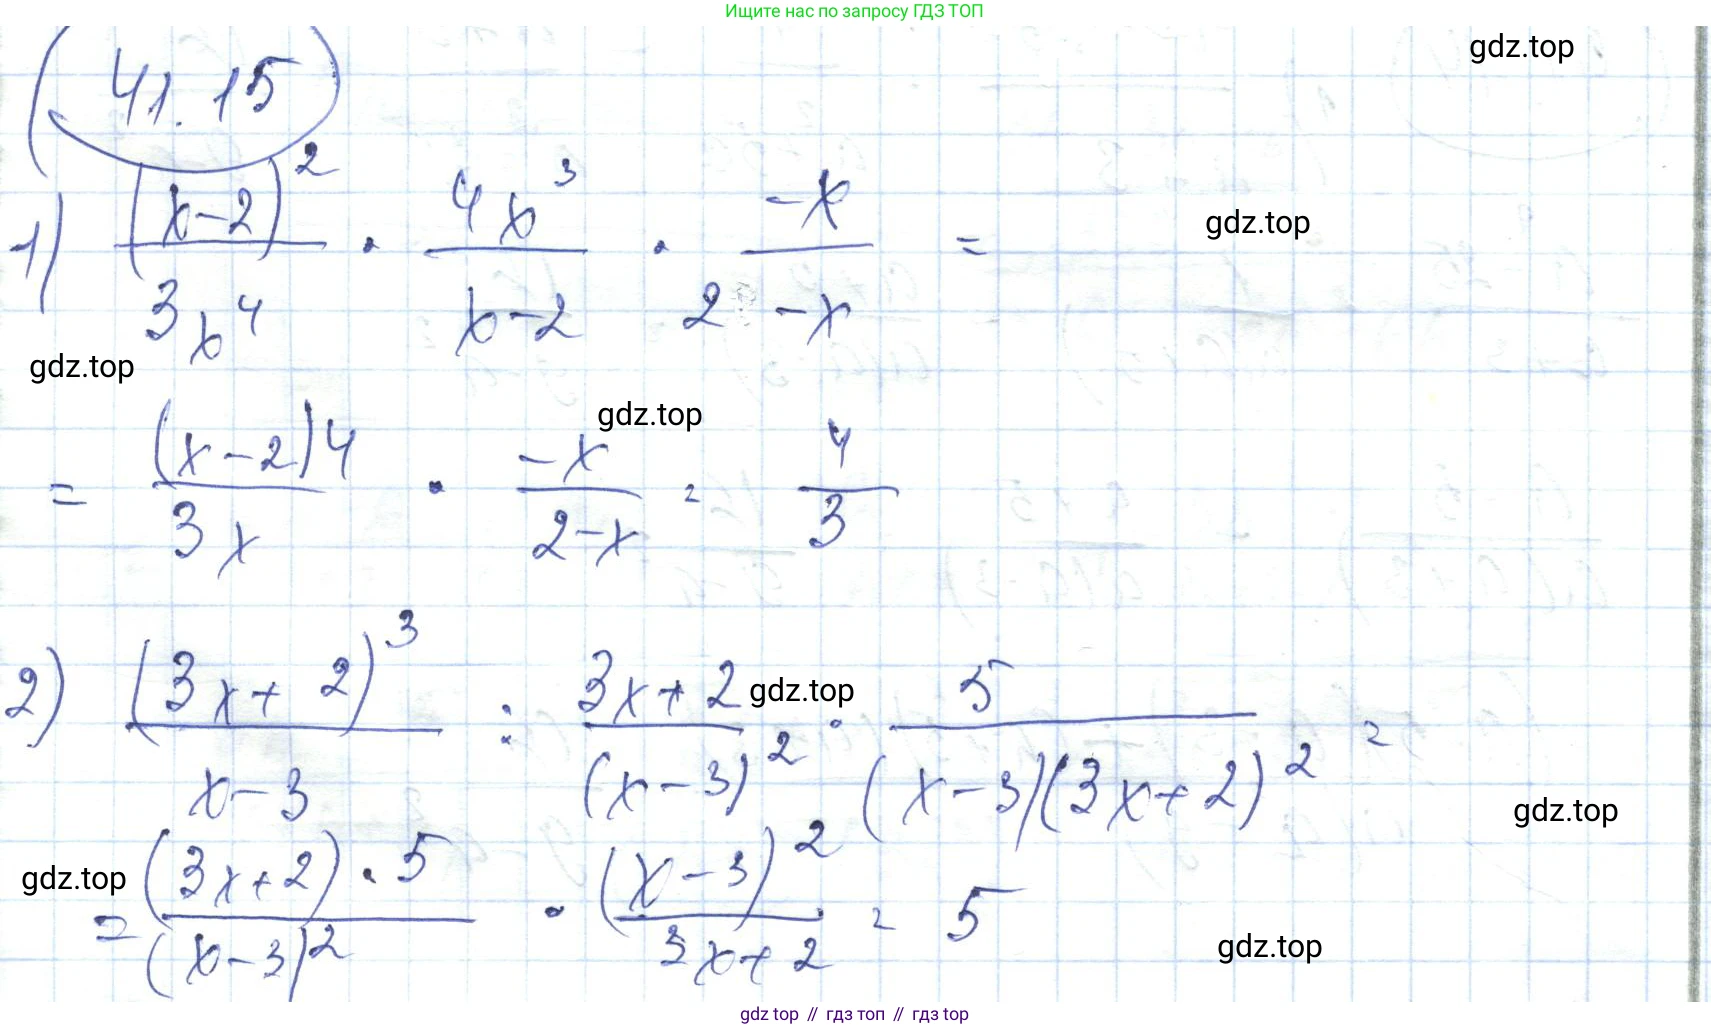 Ищите нас по запросу ГДЗ ТОП
gdz.top
41.15
1) (x-2)²/3x⁴ · 4x³/x-2 · -x/2-x =
gdz.top
gdz.top
gdz.top
= (x-2)4/3x · -x/2-x = 4/3
2) (3x+2)³/x-3 : 3x+2/(x-3)² · 5/(x-3)(3x+2)² =
gdz.top
gdz.top
gdz.top
= (3x+2)·5/(x-3)² · (x-3)²/3x+2 = 5
gdz.top
gdz top // гдз топ // гдз top